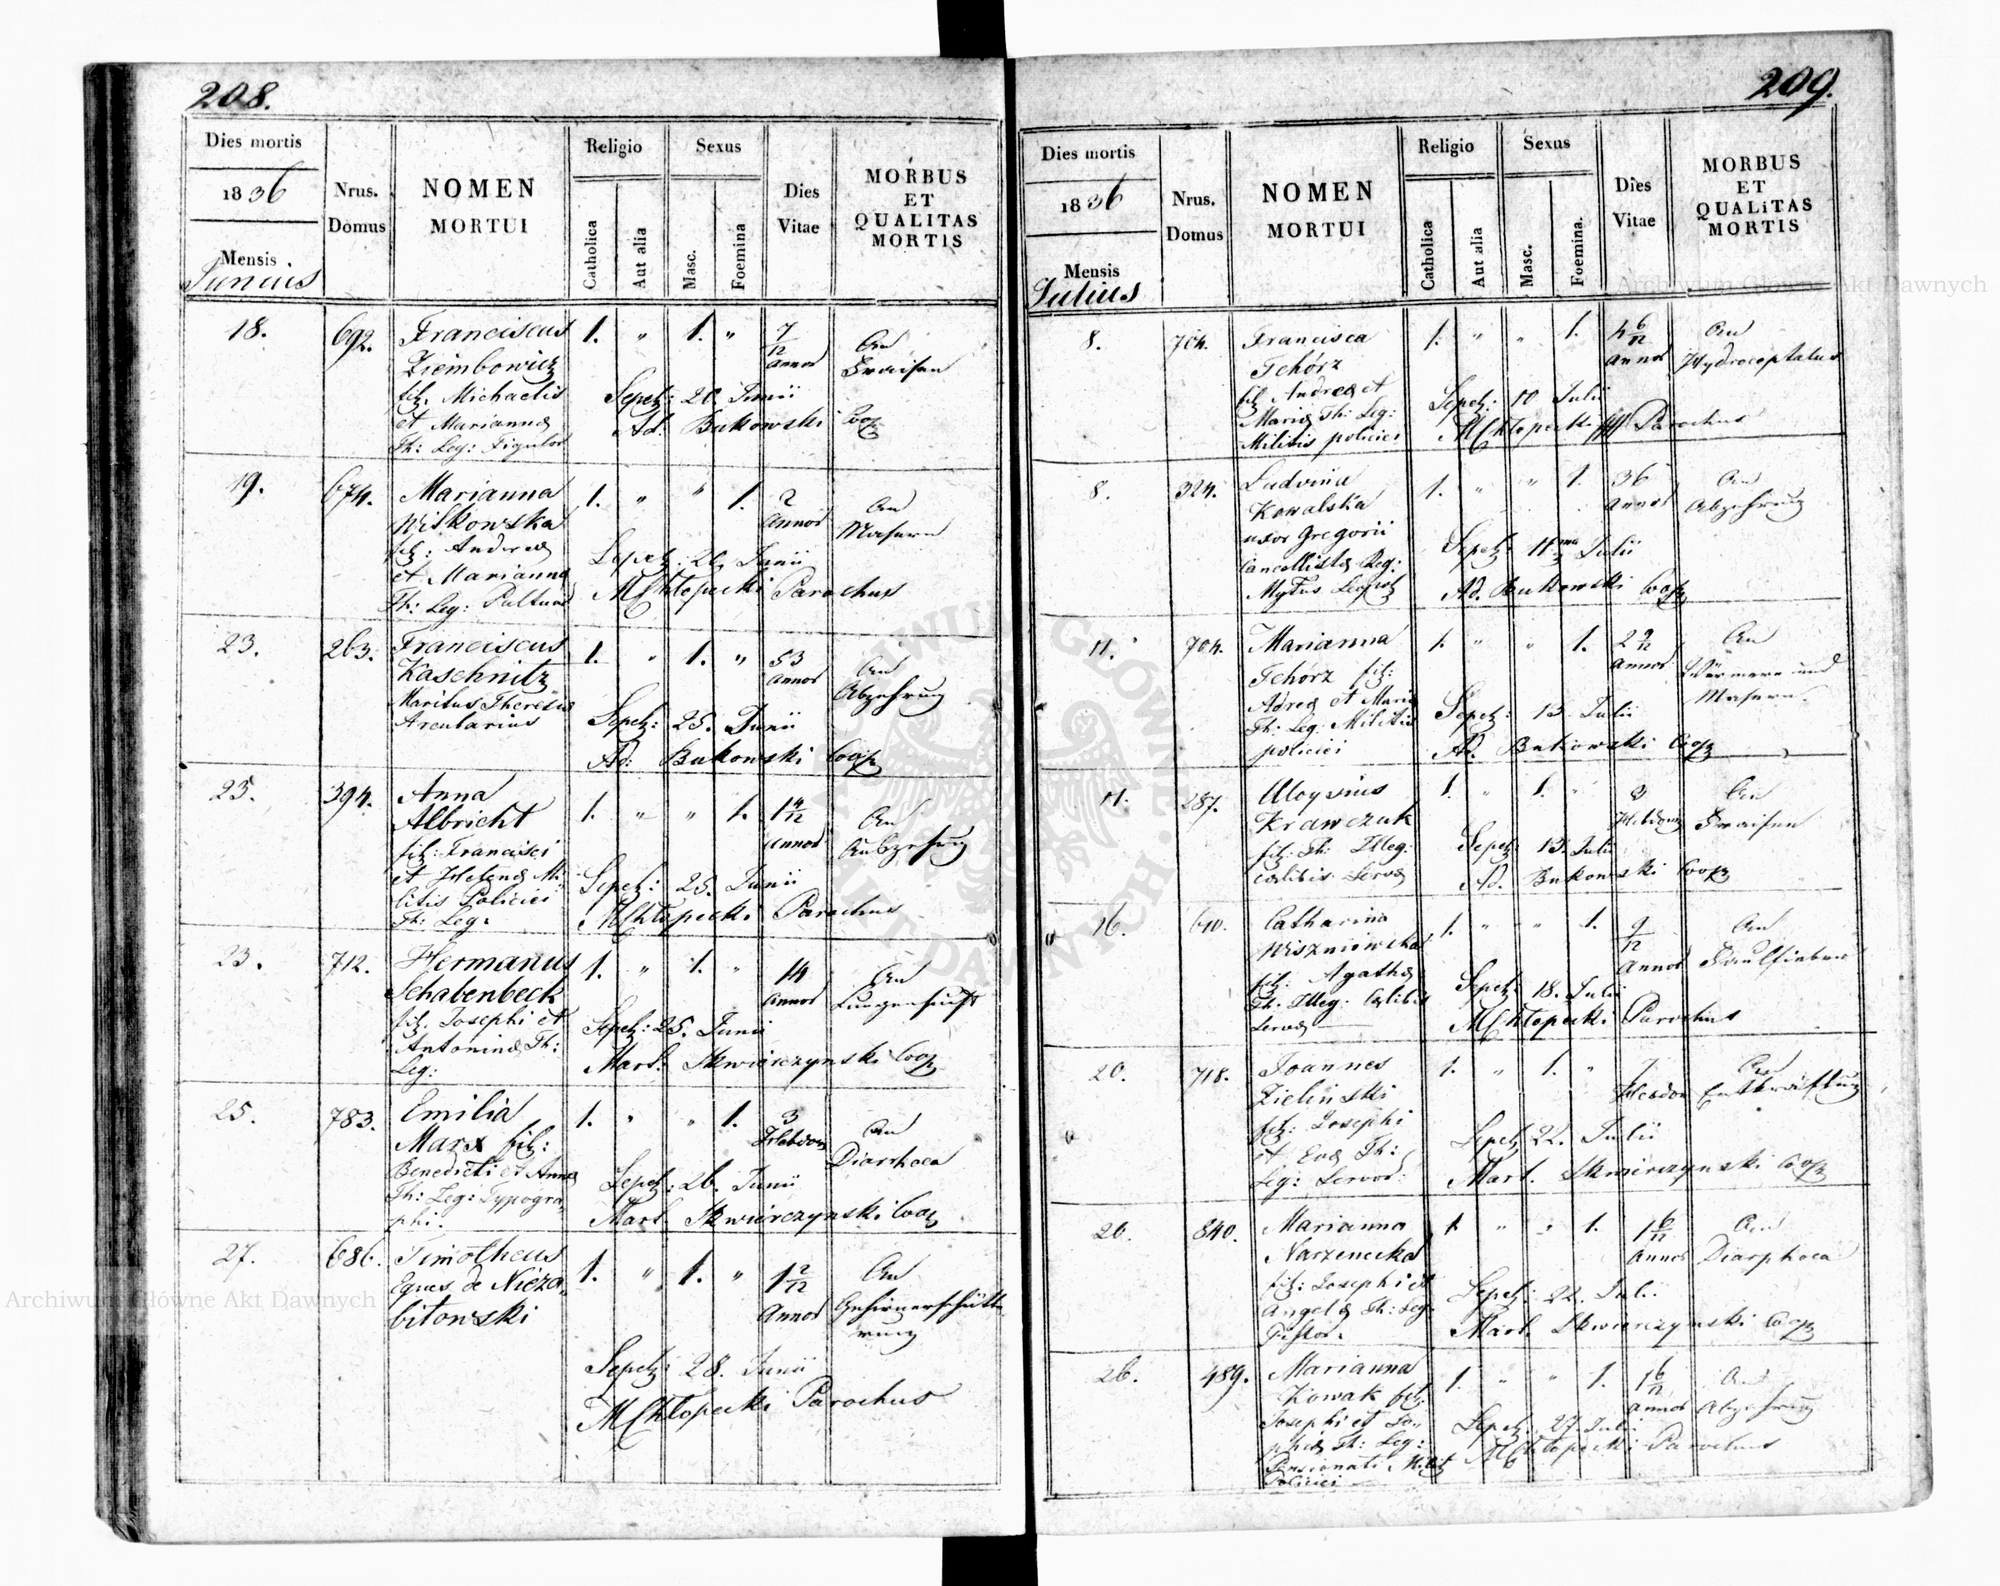 208.
Dies mortis
1836
Mensis
Junius
Nrus.
Domus
NOMEN
MORTUI
Religio
Catholica
Aut alia
Sexus
Masc.
Foemina
Dies
Vitae
MORBUS
ET
QUALITAS
MORTIS
18. 692. Franciscus 1. " 1. " 7/12 An
Ziembowicz Annor Fraisen
fil. Michaelis Sepel: 20. Junii
et Mariannae Ad. Bukowski Coop
Th: Leg: Figulor
19. 674. Marianna 1. " " 1. 2 An
Witkowska Annor Masern
fil: Andreae Sepel: 20. Junii
et Marianna MChłopecki Parochus
Th: Leg:
23. 263. Franciscus 1. " 1. " 53 An
Kaschnitz Annor Abzehrung
Maritus Theresiae Sepel: 25. Junii
Arcularius Ad: Bukowski Coop
23. 394. Anna 1. " " 1. 1 4/12 An
Albricht Annor Abzehrung
fil: Francisci
et Helenae Mi- Sepel: 25. Junii
litis Policiei MChłopecki Parochus
Th: Leg:
23. 712. Hermanus 1. " 1. " 14 An
Schabenbeck Annor Lungensucht
fil. Josephi et Sepel: 25. Junii
Antoninae Th: Mart. Skwierczynski Coop
Leg:
25. 783. Emilia 1. " " 1. 3 An
Marx fil: Hebdom Diarrhoea
Benedicti et Annae Sepel: 26. Junii
Th: Leg: Typogra- Mart. Skwierczynski Coop
phi.
27. 686. Timotheus 1. " 1. " 1 2/12 An
Eques de Nieza- Annor Gehirnerschütte-
bitowski rung
Sepel: 28. Junii
MChłopecki Parochus
209.
Dies mortis
1836
Mensis
Julius
Nrus.
Domus
NOMEN
MORTUI
Religio
Catholica
Aut alia
Sexus
Masc.
Foemina.
Dies
Vitae
MORBUS
ET
QUALITAS
MORTIS
8. 704. Francisca 1. " " 1. 4 6/12 An
Tchórz Annor Hydrocephalus
fil Andreae et Sepel: 10 Julii
Mariae Th: Leg: MChłopecki Parochus
Militis policiei
8. 324. Ludvina 1. " " 1. 36 An
Kowalska Annor Abzehrung
uxor Gregorii Sepel: 11ma Julii
Cancellistae Reg: Ad. Bukowski Coop
11. 704. Marianna 1. " " 1. 2 An
Tchórz fil: Annor Würmern und
Adreae et Mariae Sepel: 13. Julii Masern.
Th: Leg. Militis Ad. Bukowski Coop
policiei
11. 287. Aloysius 1. " 1. " 3 An
Krawczuk Hebdom Fraisen
fil: Th: Illeg: Sepel: 13. Julii
Caelibis Servae Ad. Bukowski Coop
16. 610. Catharina 1. " " 1. 9/12 An
Wiszniowska Annor Faulfieber
fil: Agathae Sepel: 18. Julii
Th: Illeg: Caelibis MChłopecki Parochus
Servae
20. 718. Joannes 1. " 1. " 7 An
Zielinski Hebdom Entkräftung
fil: Josephi Sepel: 22. Julii
et Evae Th: Mart. Skwierczynski Coop
Leg: Servor:
20. 840. Marianna 1. " " 1. 1 6/12 An
Narzenecka Annor Diarrhoea
fil: Josephi et Sepel: 22. Julii
Angelae Th: Leg: Mart. Skwierczynski Coop
Pistor.
26. 489. Marianna 1. " " 1. 1 6/12 An
Nowak fil: Annor Abzehrung
Josephi et So- Sepel: 27. Julii
phiae Th: Leg: MChłopecki Parochus
Pensionati Milit
Policiei
Archiwum Główne Akt Dawnych
Archiwum Główne Akt Dawnych
ARCHIWUM GŁÓWNE AKT DAWNYCH